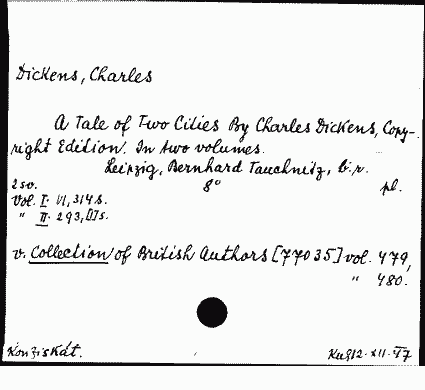 Dickens, Charles
A Tale of Two Cities By Charles Dickens, Copy-
right Edition. In two volumes.
Leipzig, Bernhard Tauchnitz, b.r.
2 sv. 8° pl.
Vol. I. VI, 314 s.
" II. 293, [1] s.
v. Collection of British Authors [77035] vol. 479,
" 480.
Konziskát.
12. XII. 47